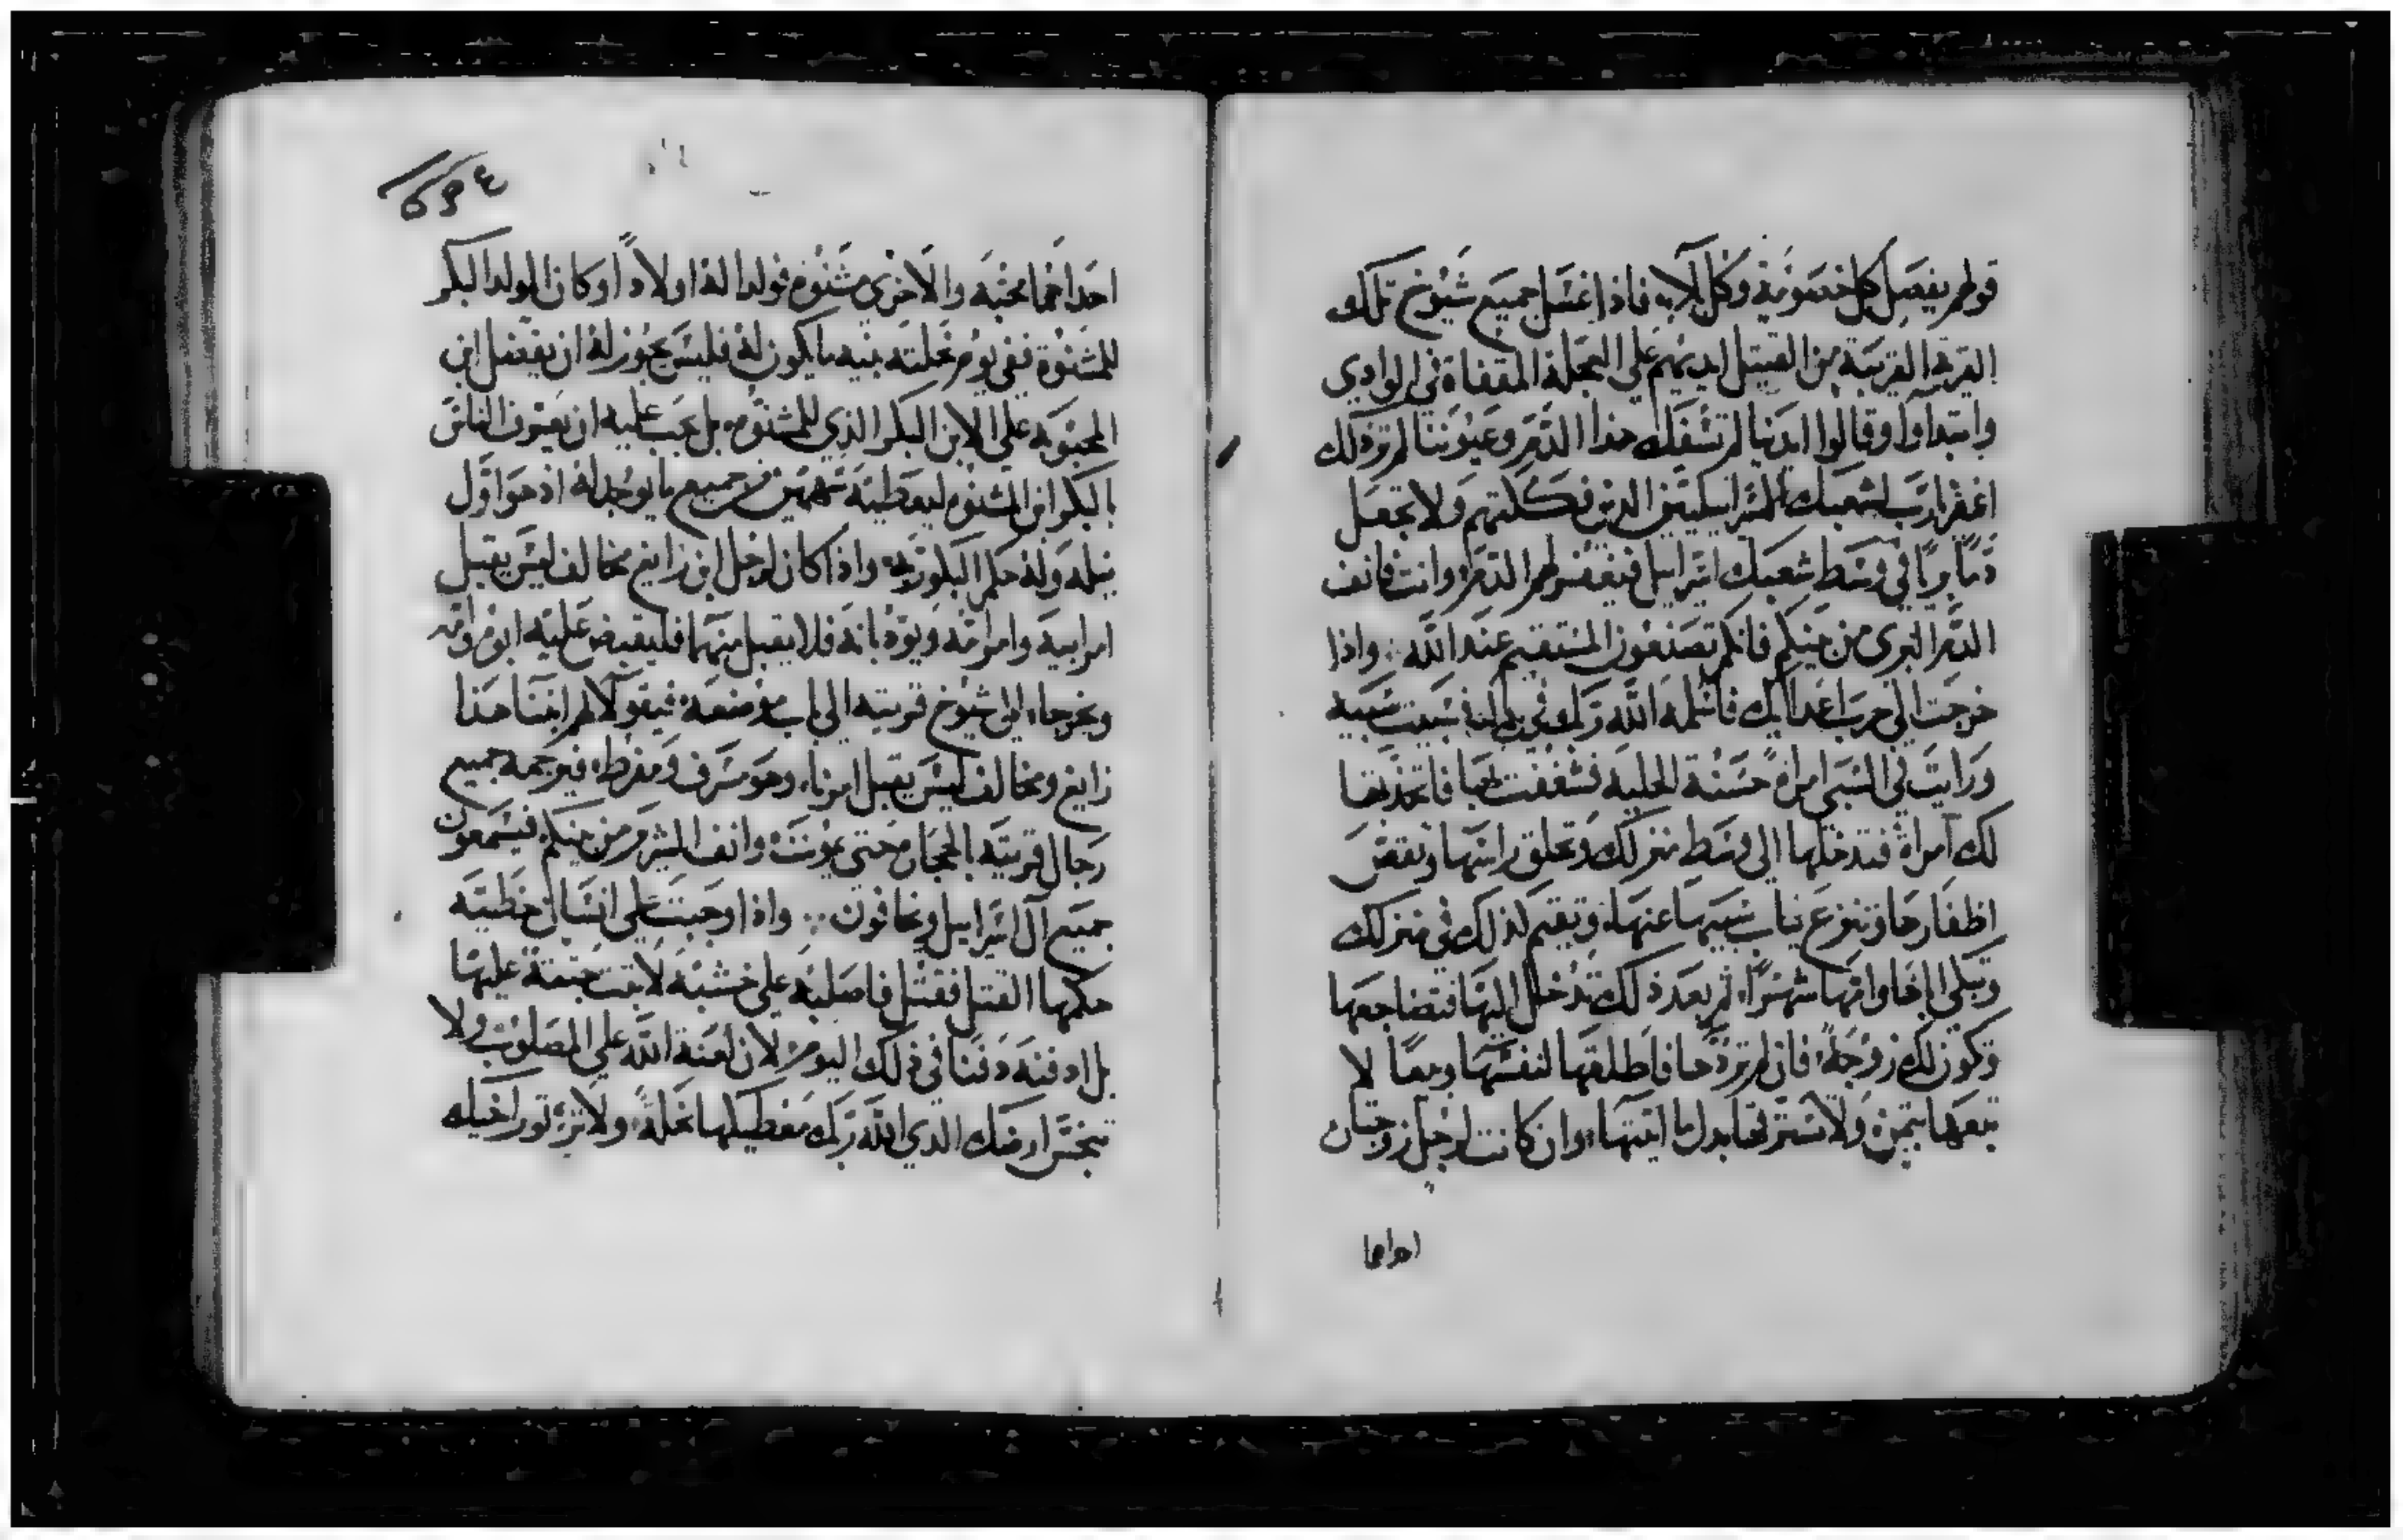 قولهم يفصل كل خصومة وكل بلاء فاذا غسل جميع شيوخ تلك
القرية القريبة من القتيل ايديهم على العجلة المقفاة في الوادي
وابتداوا وقالوا ايدينا لم تسفك هذا الدم وعيوننا لم تر ذلك
اغفر يا رب لشعبك اسراييل الدين فككتهم ولا تجعل
دما بريا في وسط شعبك اسراييل فيغفر لهم الدم وانت فانف
الدم البري من بينكم فانكم تصنعون المستقيم عند الله واذا
خرجت الى حرب اعدايك فاسلمه الله ربك في يدك فسبيت سبيه
ورايت في السبي امراة حسنة الحلية فشغفت بها فاتخذتها
لك امراة فتدخلها الى وسط منزلك وتحلق راسها وتقص
اظفارها وتنزع ثياب سبيها عنها وتقيم لذلك في منزلك
وتبكي اباها وامها شهرا ثم بعد ذلك تدخل اليها فتضاجعها
وتكون لك زوجة فان لم تردها فاطلقها لنفسها وبيعا لا
تبعها بثمن ولا تسترقها بدل ما اتيتها وان كانت لرجل زوجتان
احداهما
٤٣٥
احداهما محبة والاخرى مشنوه فولدا له اولادا وكان الولد البكر
للمشنوة ففي يوم نحلته بنيه ما يكون له فليس يجوز له ان يفضل ابن
المحبوبة على الابن البكر الذي للمشنوه بل يجب عليه ان يعترف الناس
بالبكر ابن المشنوه ليعطيه سهمين من جميع ما يوجد له اذ هو اول
نيله وله حكم البكورية واذا كان لرجل ابن زايغ مخالف ليس يقبل
امر ابيه وامر امه ويودبانه فلا يقبل منهما فليقبض عليه ابوه وامه
ويخرجاه الى شيوخ قريته الى باب موضعه فيقولا لهم ابننا هذا
زايغ ومخالف ليس يقبل امرنا وهو مسرف ومفرط فيرجمه جميع
رجال قريته بالحجاره حتى يموت وانف الشر من بينكم فيسمعون
جميع آل اسراييل ويخافون واذا وجبت على انسان خطية
حكمها القتل فقتل فاصلبه على خشبة لا تبت جثته عليها
بل ادفنه دفنا في ذلك اليوم لان لعنة الله على المصلوب ولا
تنجس ارضك الدي الله ربك معطيكها نحلة ولا تر ثور اخيك